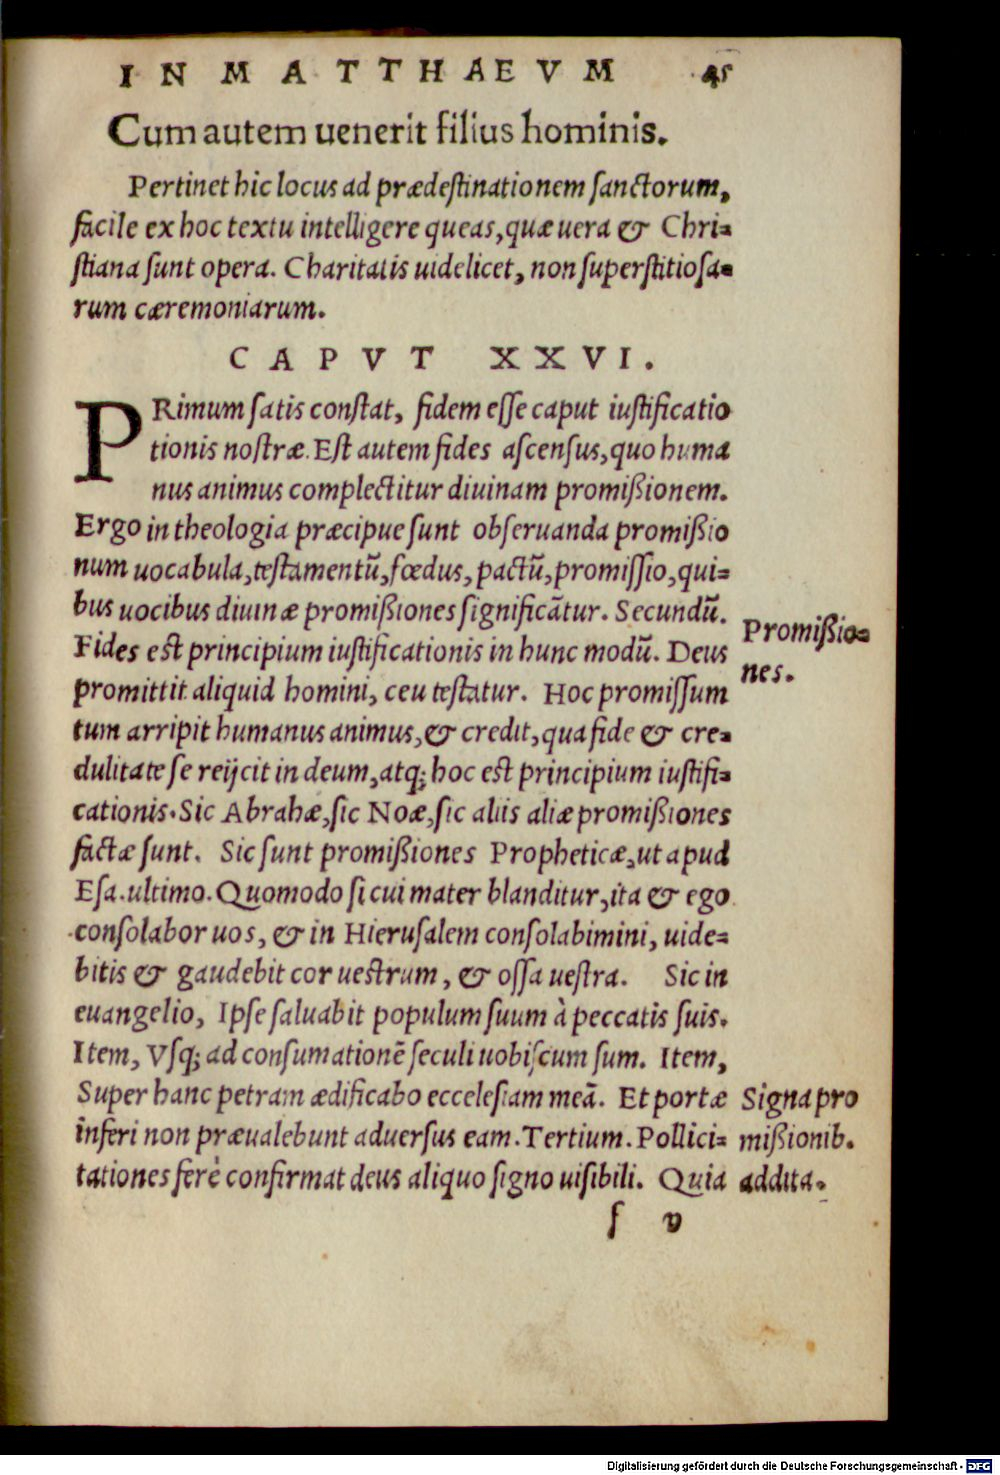 IN MATTHAEVM 45
Cum autem uenerit filius hominis.
Pertinet hic locus ad prædestinationem sanctorum,
facile ex hoc textu intelligere queas, quæ uera & Chri=
stiana sunt opera. Charitatis uidelicet, non superstitiosa=
rum cæremoniarum.
CAPVT XXVI.
PRimum satis constat, fidem esse caput iustificatio
tionis nostræ. Est autem fides ascensus, quo huma
nus animus complectitur diuinam promißionem.
Ergo in theologia præcipue sunt obseruanda promißio
num uocabula, testamentũ, fœdus, pactũ, promissio, qui=
bus uocibus diuinæ promißiones significãtur. Secundũ.
Fides est principium iustificationis in hunc modũ. Deus
promittit aliquid homini, ceu testatur. Hoc promissum
tum arripit humanus animus, & credit, qua fide & cre=
dulitate se reijcit in deum, atq; hoc est principium iustifi=
cationis. Sic Abrahæ, sic Noæ, sic aliis aliæ promißiones
factæ sunt. Sic sunt promißiones Propheticæ, ut apud
Esa. ultimo. Quomodo si cui mater blanditur, ita & ego
consolabor uos, & in Hierusalem consolabimini, uide=
bitis & gaudebit cor uestrum, & ossa uestra. Sic in
euangelio, Ipse saluabit populum suum à peccatis suis.
Item, Vsq; ad consumationẽ seculi uobiscum sum. Item,
Super hanc petram ædificabo eccelesiam meã. Et portæ
inferi non præualebunt aduersus eam. Tertium. Pollici=
tationes ferè confirmat deus aliquo signo uisibili. Quia
f v
Promißio=
nes.
Signa pro
mißionib.
addita.
Digitalisierung gefördert durch die Deutsche Forschungsgemeinschaft - DFG